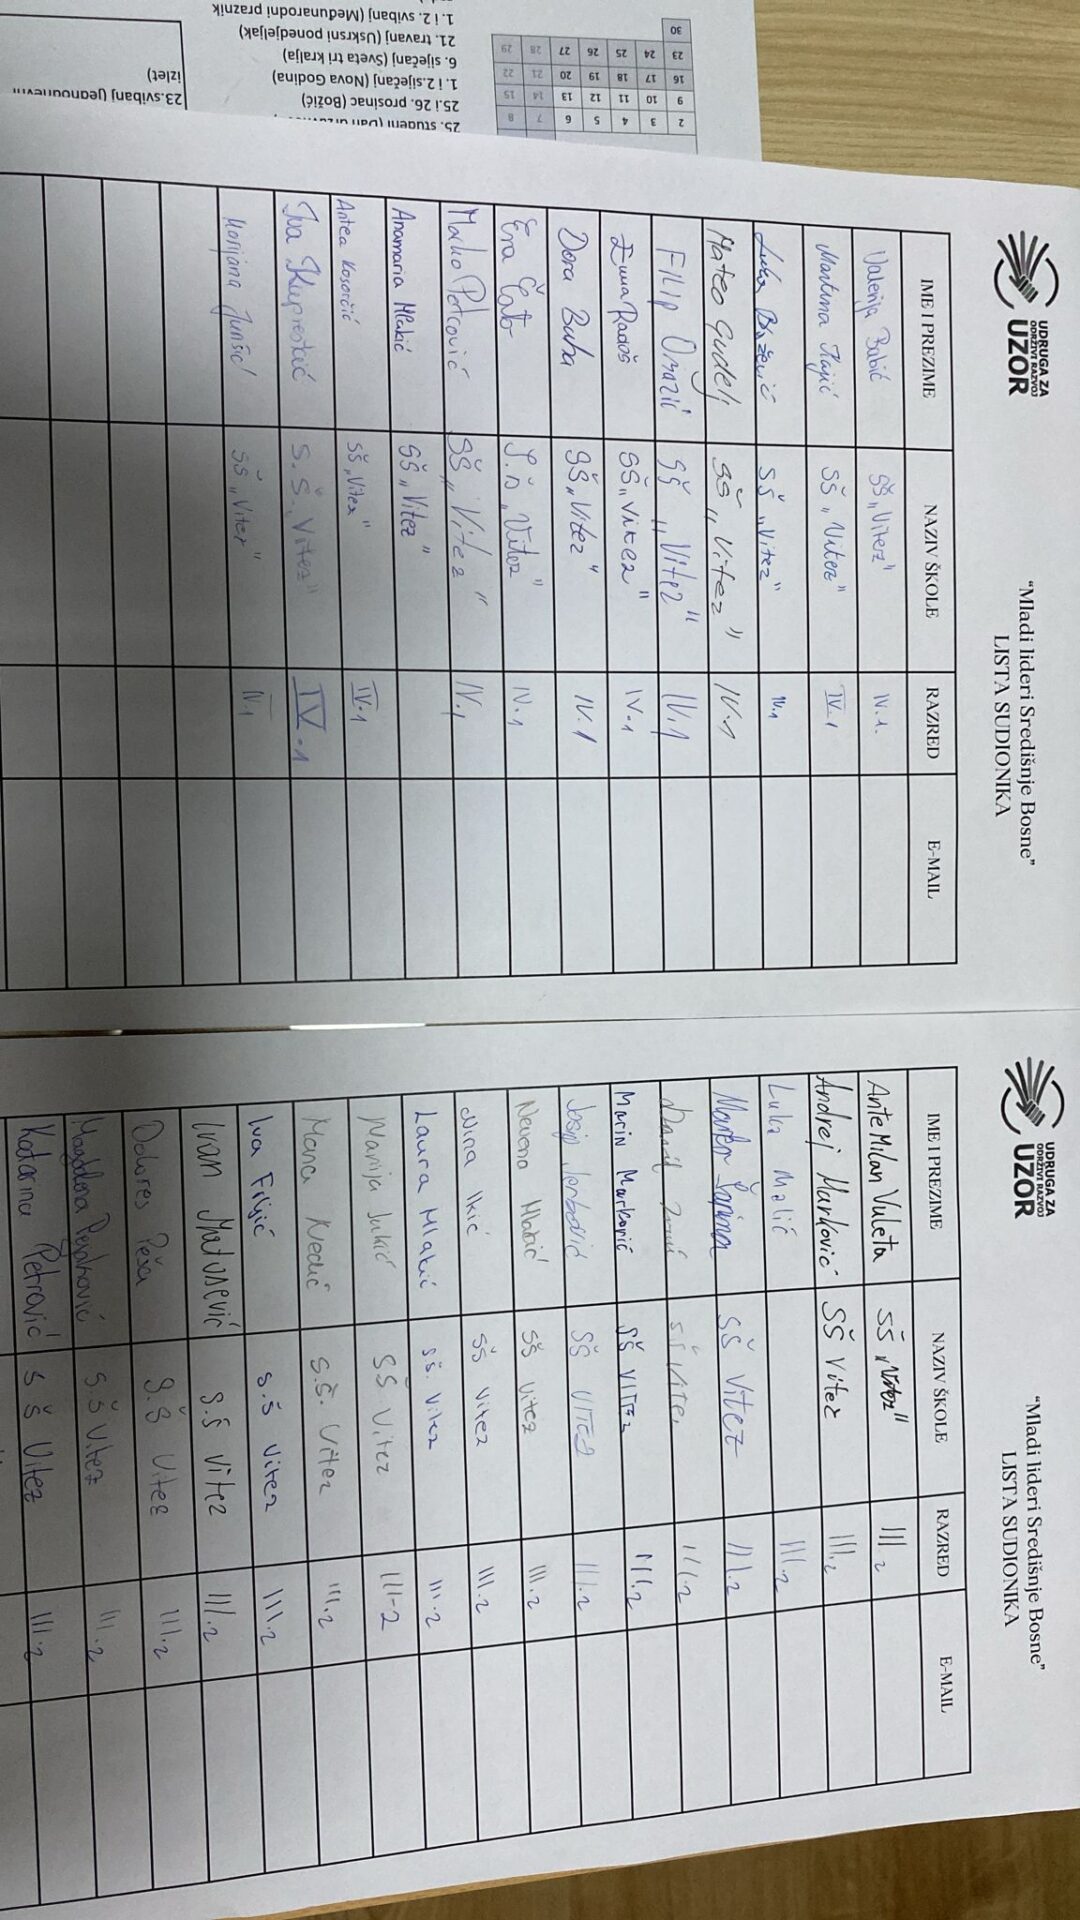 UDRUGA ZA
ODRŽIVI RAZVOJ
UZOR
"Mladi lideri Središnje Bosne"
LISTA SUDIONIKA
IME I PREZIME NAZIV ŠKOLE RAZRED E-MAIL
Valerija Babić SŠ „Vitez" IV.1.
Martina Kajić SŠ „Vitez" IV.1
Luka Blažević SŠ „Vitez" IV.1
Mateo Gudelj SŠ „Vitez" IV.1
Filip SŠ „Vitez" IV.1
Ema Radoš SŠ „Vitez" IV.1
Dora Buha SŠ „Vitez" IV.1
Ena Čato „Vitez" IV.1
Marko Petrović SŠ „Vitez" IV.1
Anamaria Mlakić SŠ „Vitez"
Antea Kosorčić SŠ „Vitez" IV.1
Iva Kupreškić S.Š. „Vitez" IV.1
Jurišić SŠ „Vitez" IV.1
UDRUGA ZA
ODRŽIVI RAZVOJ
UZOR
"Mladi lideri Središnje Bosne"
LISTA SUDIONIKA
IME I PREZIME NAZIV ŠKOLE RAZRED E-MAIL
Ante Milan Vuleta SŠ „Vitez" III.2
Andrej Marković SŠ Vitez III.2
Luka Malić III.2
Šapina SŠ Vitez III.2
III.2
Marin Marković SŠ VITEZ III.2
Josip SŠ VITEZ III.2
Nevena Mlakić SŠ Vitez III.2
Nina Ikić SŠ Vitez III.2
Laura Mlakić SŠ. Vitez III.2
Marija Jukić SŠ. Vitez III-2
Mana Nedić S.Š. Vitez III.2
Iva Filjić S.Š Vitez III.2
Ivan Matošević S.Š Vitez III.2
Dolores Peša S.Š Vitez III.2
Magdalena Pejaković S.Š Vitez III.2
Katarina Petrović S Š Vitez III.2
2 3 4 5 6 7 8
9 10 11 12 13 14 15
16 17 18 19 20 21 22
23 24 25 26 27 28 29
30
25. studeni (Dan
25.i 26. prosinac (Božić)
1. i 2.siječanj (Nova Godina)
6. siječanj (Sveta tri kralja)
21. travanj (Uskrsni ponedjeljak)
1. i 2. svibanj (Međunarodni praznik
23.svibanj (jednodnevni
izlet)